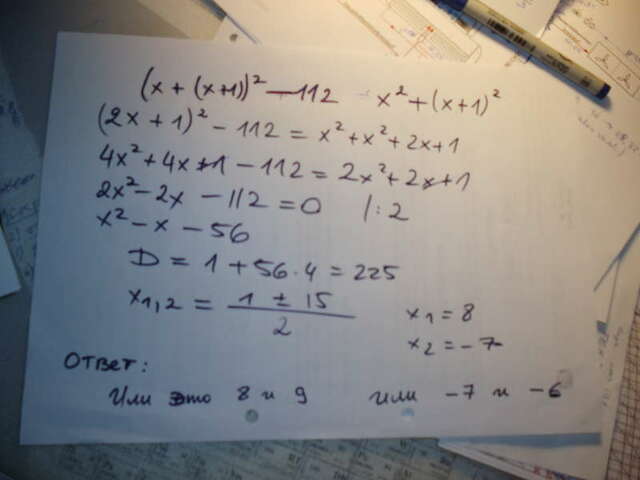 (x + (x+1))² - 112 = x² + (x+1)²
(2x + 1)² - 112 = x² + x² + 2x + 1
4x² + 4x + 1 - 112 = 2x² + 2x + 1
2x² - 2x - 112 = 0 /: 2
x² - x - 56
D = 1 + 56 · 4 = 225
x₁,₂ = (1 ± 15)/2
x₁ = 8
x₂ = -7
Ответ:
Или это 8 и 9 или -7 и -6